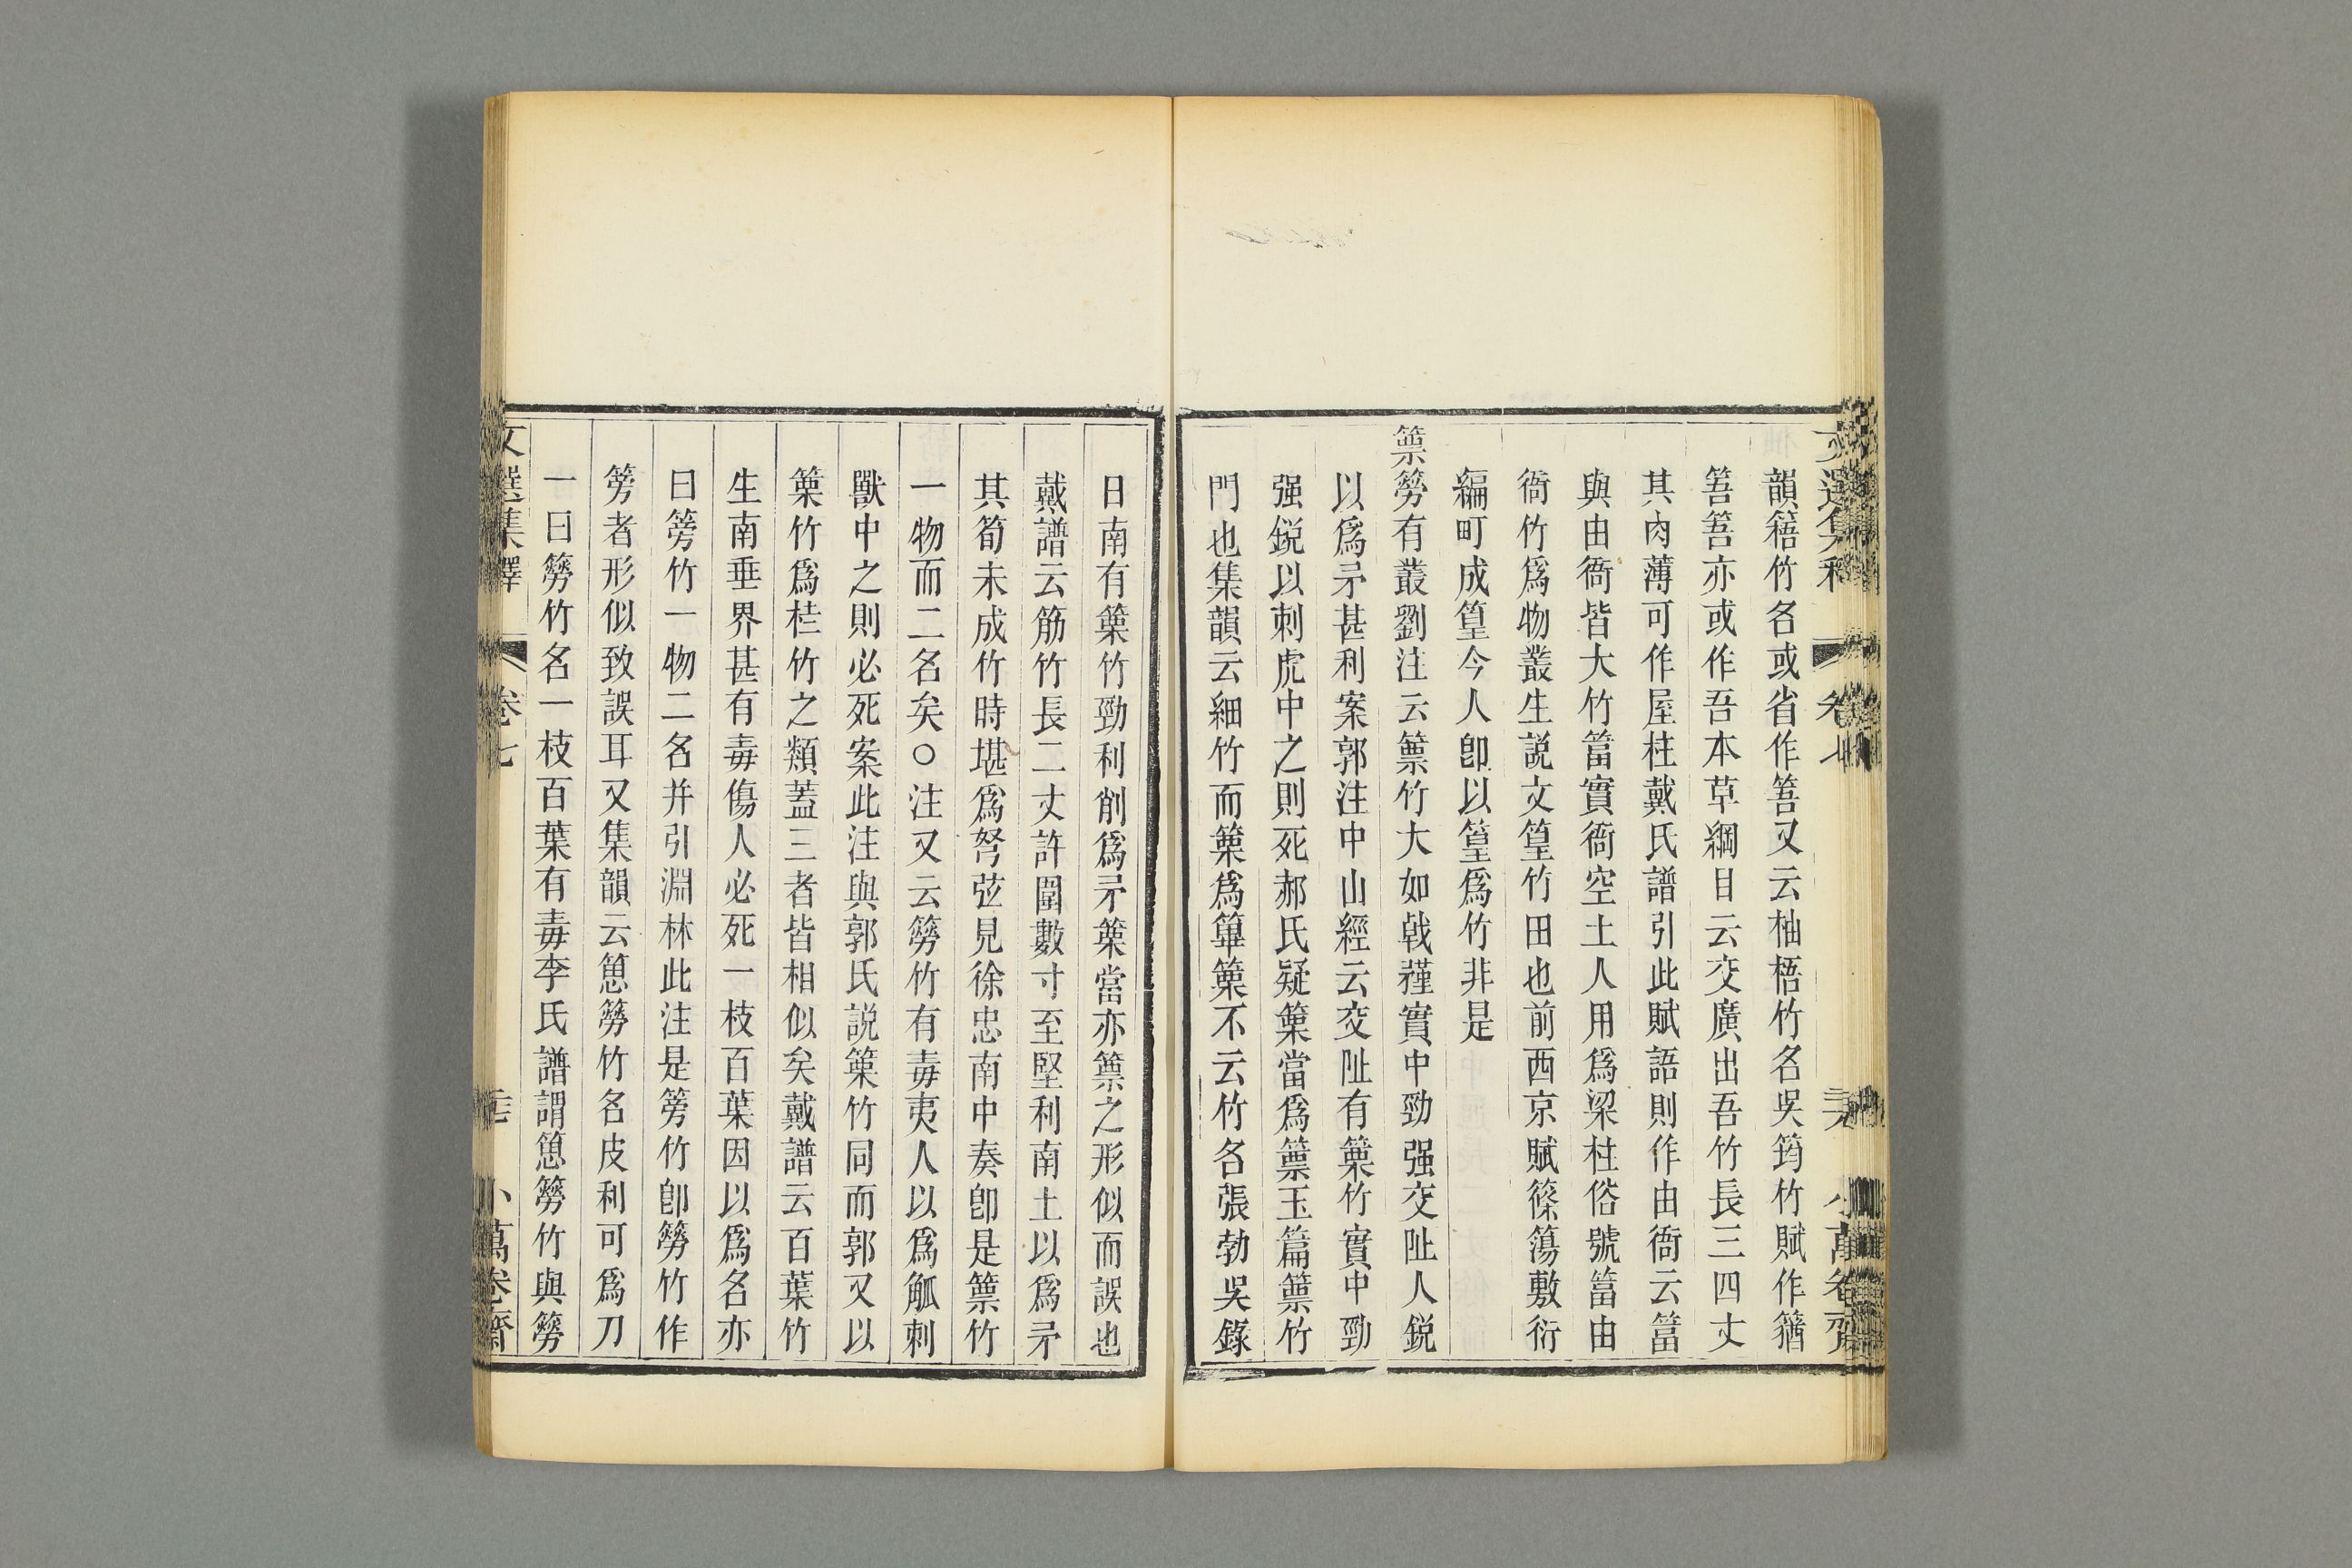 韻䉣竹名或省作䇢又云柚梧竹名吳筠竹賦作䉛
䇢䇢亦或作吾本草綱目云交廣出吾竹長三四丈
其肉薄可作屋柱戴氏譜引此賦語則作由衙云篔
與由衙皆大竹篔實衙空土人用爲梁柱俗號篔由
衙竹爲物叢生説文篁竹田也前西京賦篠簜敷衍
編町成篁今人卽以篁爲竹非是
篻簩有叢劉注云篻竹大如戟槿實中勁强交阯人鋭
以爲矛甚利案郭注中山經云交阯有䈽竹實中勁
强鋭以刺虎中之則死郝氏疑䈽當爲篻玉篇篻竹
門也集韻云細竹而䈽爲篳䈽不云竹名張勃吳錄
日南有䈽竹勁利削爲矛䈽當亦篻之形似而誤也
戴譜云筋竹長二丈許圍數寸至堅利南土以爲矛
其筍未成竹時堪爲弩弦見徐忠南中奏卽是篻竹
一物而二名矣○注又云簩竹有毒夷人以爲觚刺
獸中之則必死案此注與郭氏説䈽竹同而郭又以
䈽竹爲桂竹之類蓋三者皆相似矣戴譜云百葉竹
生南垂界甚有毒傷人必死一枝百葉因以爲名亦
曰篣竹一物二名并引淵林此注是篣竹卽簩竹作
篣者形似致誤耳又集韻云䈡簩竹名皮利可爲刀
一曰簩竹名一枝百葉有毒李氏譜謂䈡簩竹與簩
文選集釋 卷七 小萬卷齋